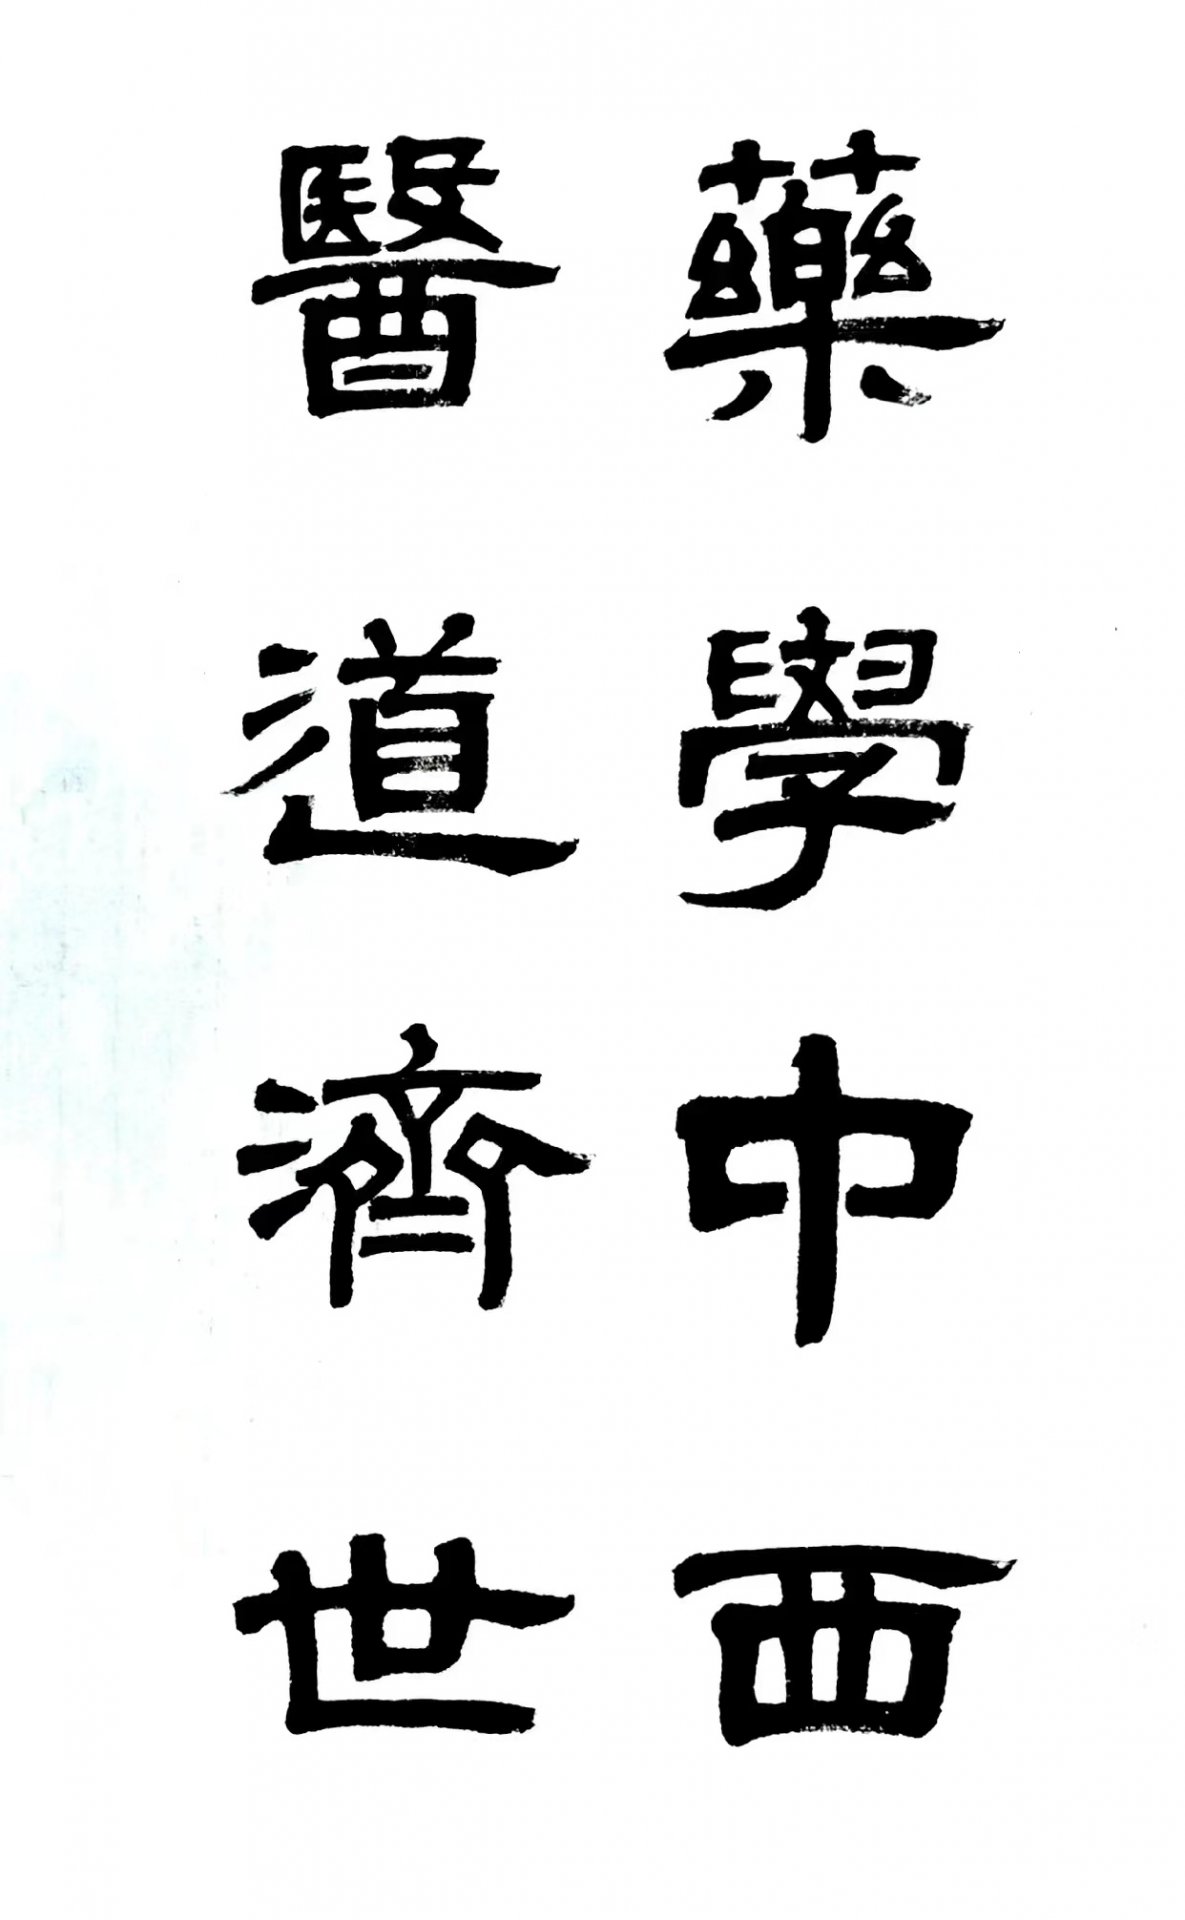 藥學中西
醫道濟世